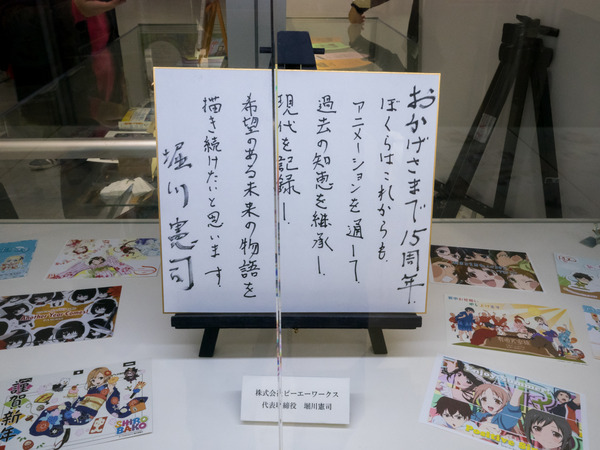 おかげさまで15周年
ぼくらはこれからも、
アニメーションを通して、
過去の知恵を継承し、
現代を記録し、
希望のある未来の物語を
描き続けたいと思います。
堀川憲司
株式会社ピーエーワークス
代表取締役 堀川憲司
謹賀新年
SHIRO
BAKO